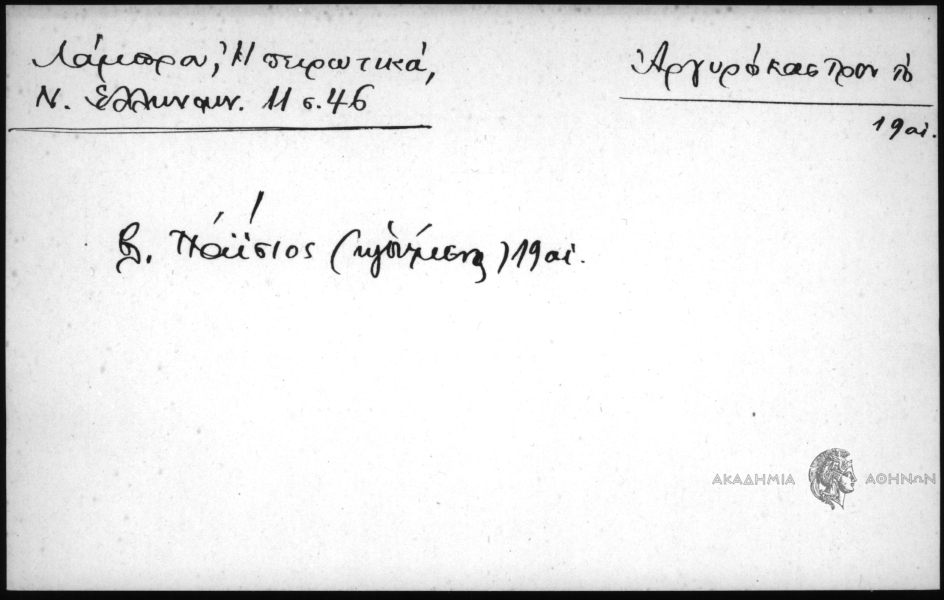 Λάμπρου, Ἠπειρωτικά,
Ν. Ἑλληνομν. 11 σ. 46
Ἀργυρόκαστρον τὸ
19 αἰ.
βλ. Παΐσιος (ἡγούμενος) 19 αἰ.
ΑΚΑΔΗΜΙΑ ΑΘΗΝΩΝ